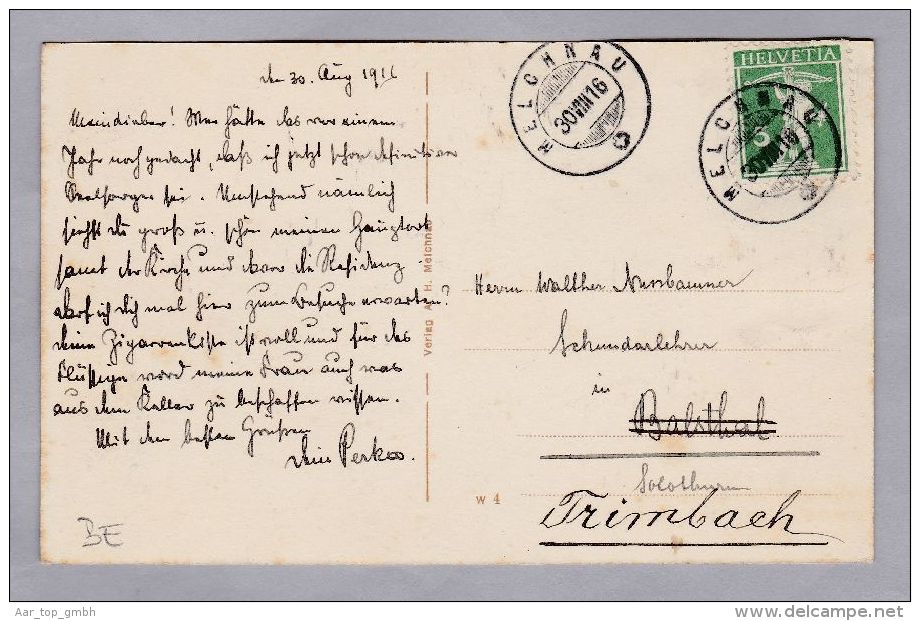 den 30. Aug 1916
Mein Lieber! Wer hätte das vor einem
Jahr noch gedacht, daß ich jetzt schon definitiver
Seelsorger sei. Umstehend nämlich
siehst du groß u. schön meinen Hauptort
samt der Kirche und davor die Residenz.
darf ich dich mal hier zum Besuche erwarten?
deine Zigarrenkiste ist voll und für das
Flüssige word meine Frau auch was
aus dem Keller zu beschaffen wissen.
Mit den besten Grüßen
dein Perkeo.
BE
Verlag H. Melchnau
w 4
MELCHNAU
30 VIII 16
HELVETIA
5
MELCHNAU
30 VIII 16
Herrn Walther Nussbaumer
Sekundarlehrer
in
Balsthal
Solothurn
Trimbach
Aar_top_gmbh
www.delcampe.net